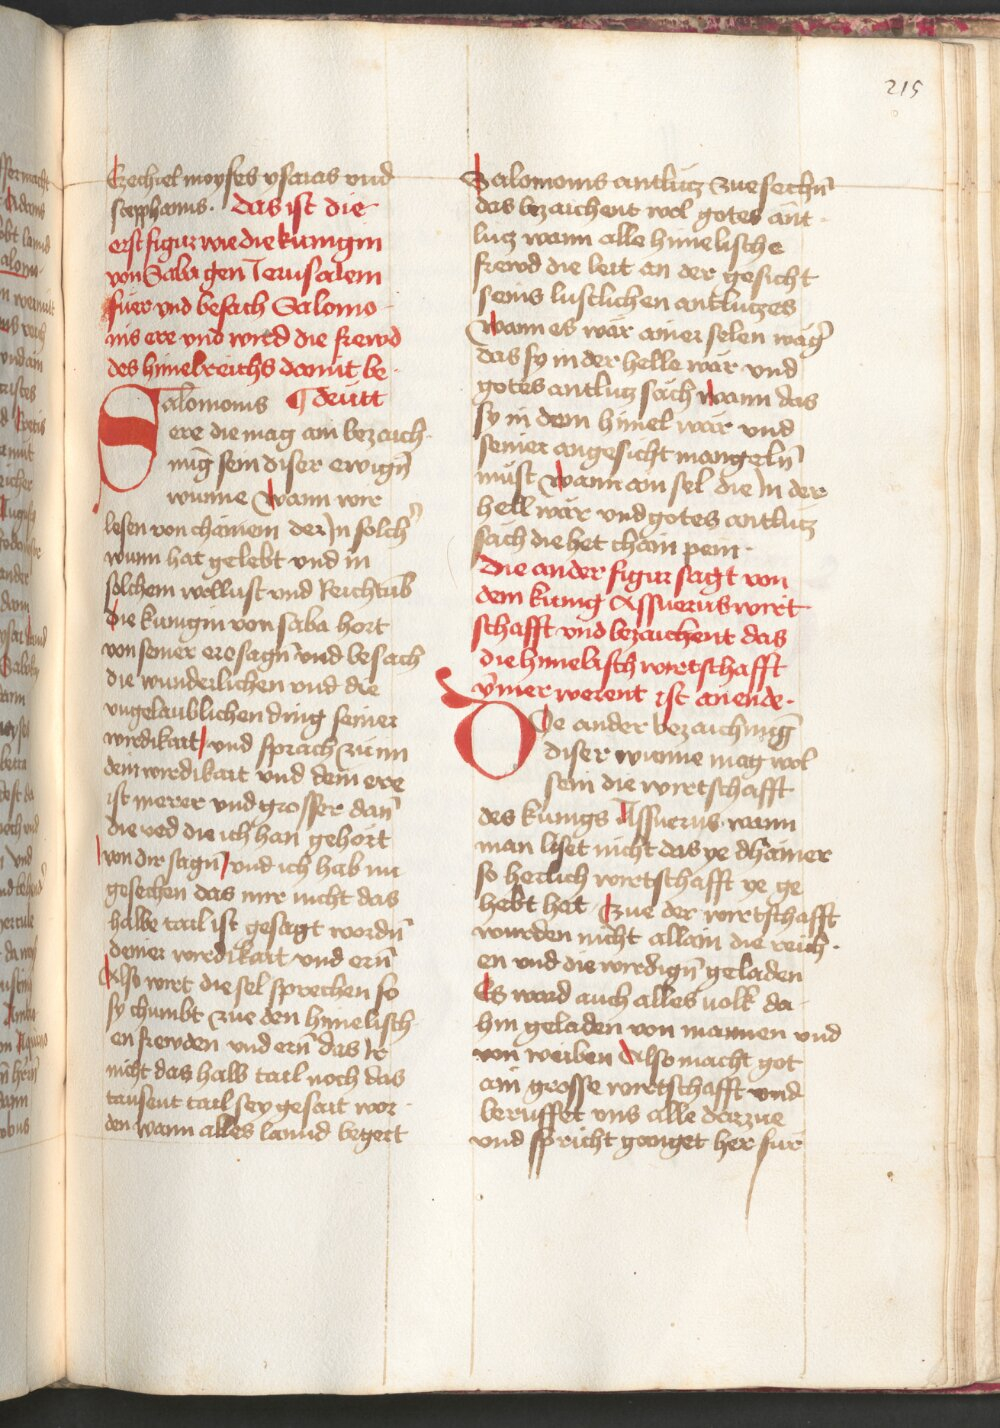 215
Ezechiel moyses ysaias vnd
stepphanus. das ist die
erst figur wie die kunigin
von Saba gen Jerusalem
fuer vnd besach Salomo
nis ere vnd wird die frewd
des himelreichs damit be
Salomonis ¶ deutt
ere die mag ain bezaich
nūg sein diser ewign̄
wunne Wann wir
lesen von chainem der Jn solch̄
wunn hat gelebt vnd in
solchem wollust vnd Reichtub
die kunigin von saba hort
von seiner ere sagn̄ vnd besach
die wunderlichen vnd die
vngelaublichen ding seiner
wirdikait vnd sprach zu im
dein wirdikait vnd dein ere
ist merer vnd grosser dan̄
die red die ich han gehort
von dir sagn̄ vnd ich hab nu
gesechen das mir nicht das
halbe tail ist gesagt wordn̄
deiner wirdikait vnd ern̄
Also wirt die sel sprechen so
sy chumbt zue den himelisch
en frewden vnd ern̄ das Jr
nicht das halb tail noch das
tausent tail sey gesait wor
den wann alles lannd begert
Salomonis antlucz zue sechn̄
das bezaichent wol gotes ant
lucz wann alle himelische
frewd die leit an der gesicht
seins lustlichen antluczes
Wann es wär ainer selen wäḡ
das sy in der helle wär vnd
gotes antlucz säch wann das
sy in dem himel wär vnd
seiner angesicht mangeln̄
müst Wann ain sel die Jn der
hell wär vnd gotes antlucz
säch die het chain pein.
Die ander figur sagt von
dem kunig Assuerus wirt
schafft vnd bezaichent das
die himelisch wirtschafft
ymer werent ist an ende.
Die ander bezaichnūg
diser wunne mag wol
sein die wirtschafft
des kunigs Assuerus wann
man liset nicht das ye dhainer
so herlich wirtschafft ye ge
hebt het Zue der wirtschafft
wurden nicht allain die reich
en vnd die wirdign̄ geladen
Es ward auch alles volk da
hin geladen von mannen vnd
von weiben Also macht got
ain grosse wirtschafft vnd
beruffet vns alle darzue
vnd spricht gaanget her für